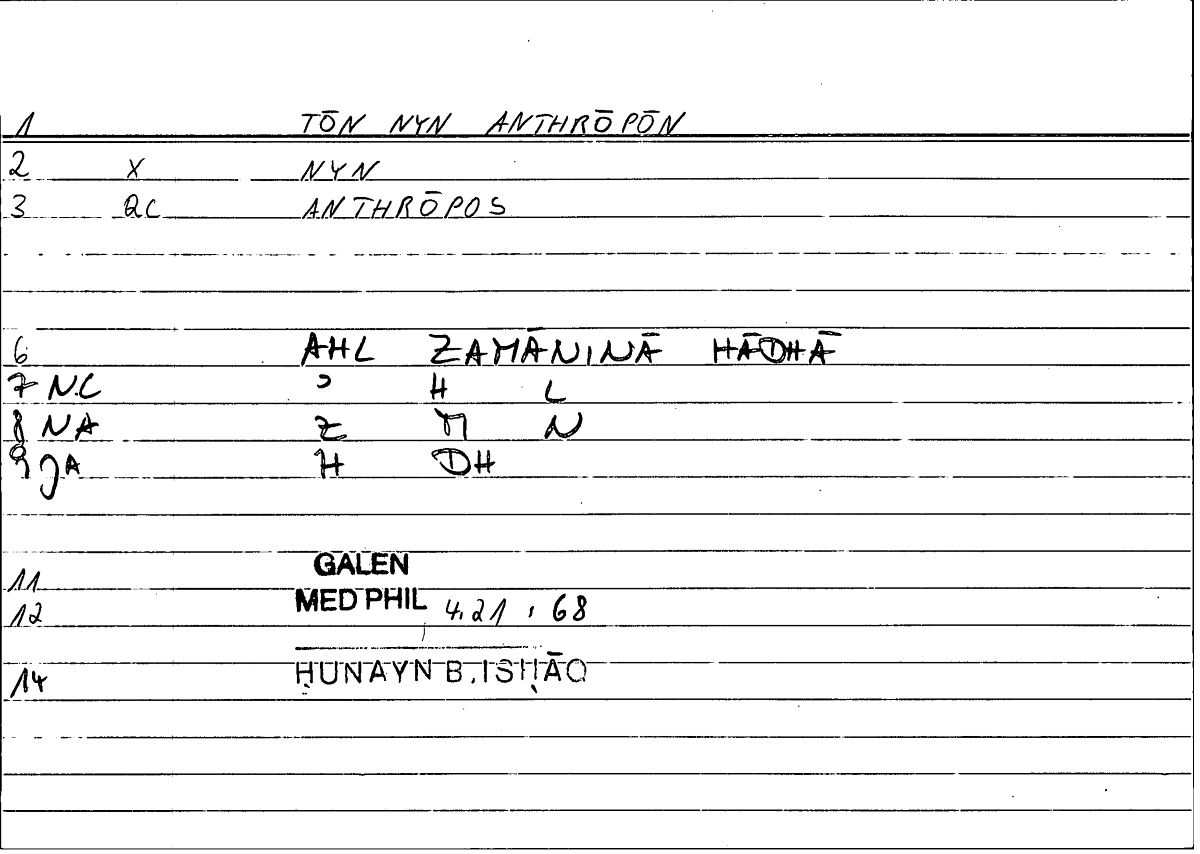 1 TŌN NYN ANTHRŌPŌN
2 X NYN
3 QC ANTHRŌPOS
6 AHL ZAMĀNINĀ HĀDHĀ
7 NC ʾ H L
8 NA Z M N
9 JA H DH
11 GALEN
12 MED PHIL 4.21 , 68
14 ḤUNAYN B. ISḤĀQ